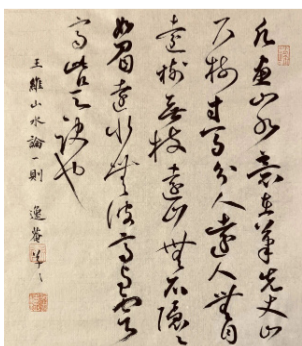 凡画山水意在筆先丈山
尺樹寸馬分人遠人無目
遠樹無枝遠山無石隱々
如眉遠水無波高与雲
齊此是訣也
王維山水論一則 逸菴